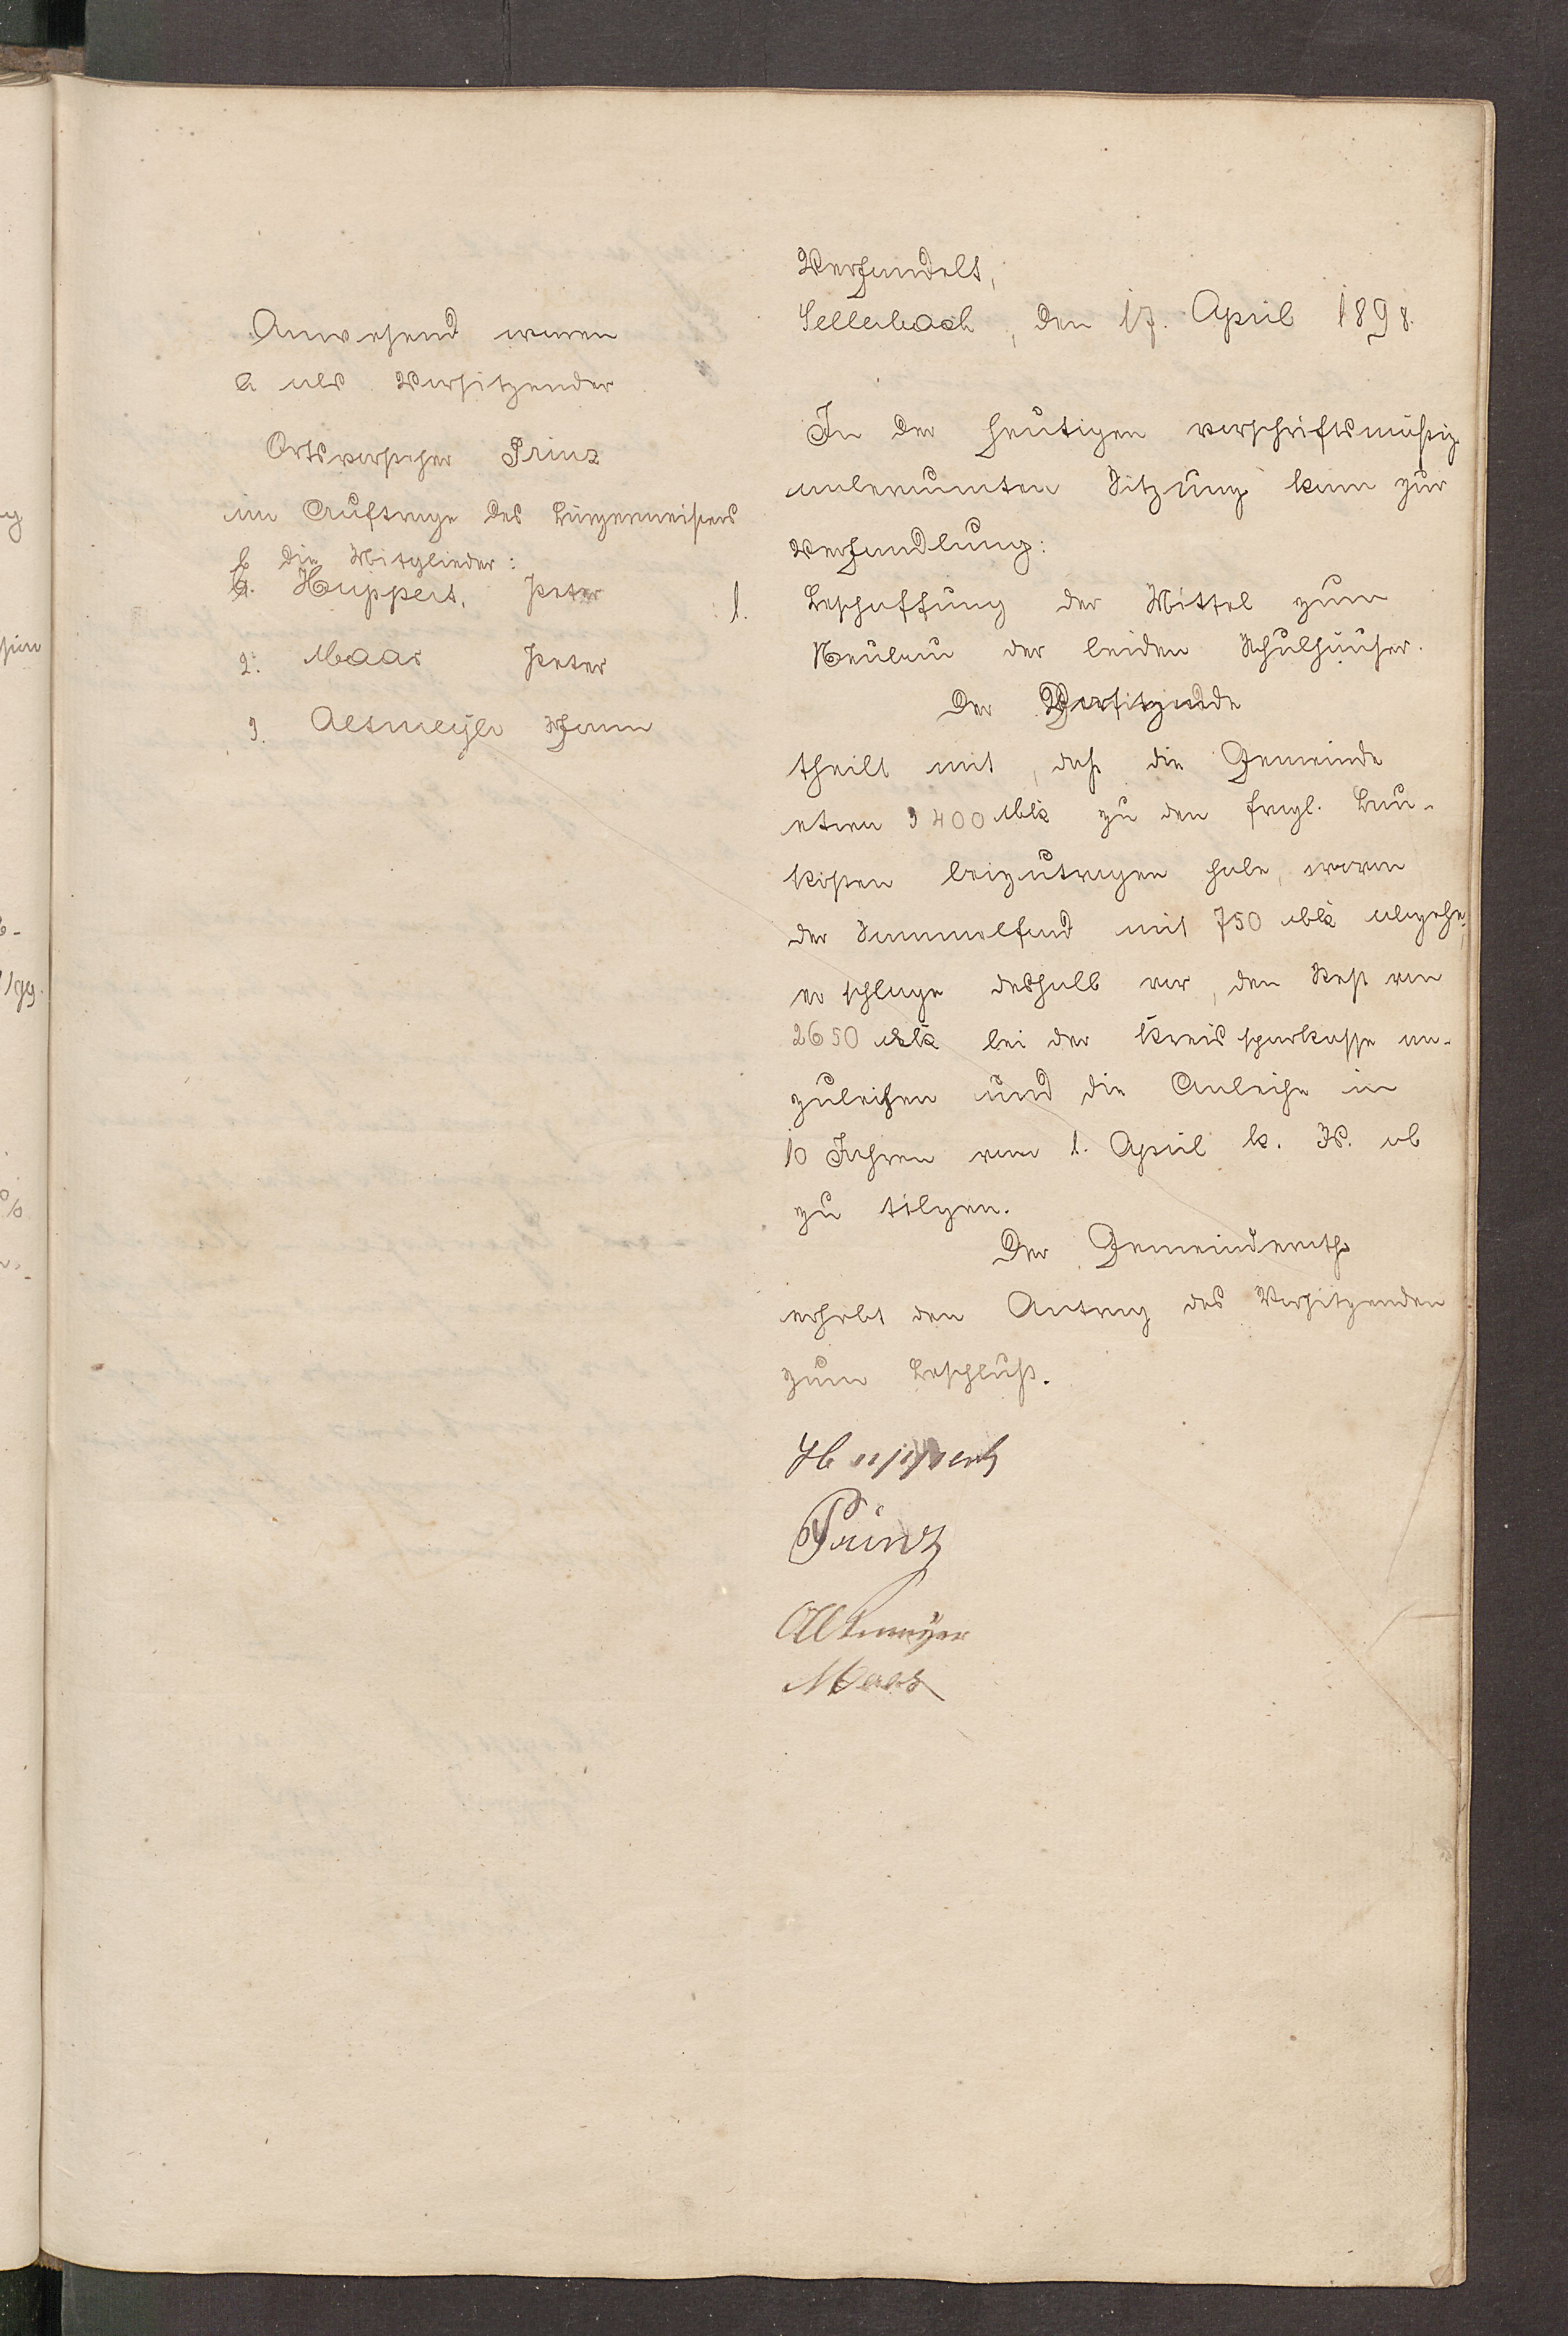 Anwesend waren
a als Vorsitzender
Ortsvorsteher Prinz
im Auftrage des Bürgermeisters
b die Mitglieder:
1. Huppert, Peter
2. Maas Peter
3. Altmeyer Johann
Verhandelt,
Sellerbach, den 17. April 1898.
In der heutigen vorschriftsmäßig
anberaumten Sitzung kam zur
Verhandlung:
1. Beschaffung der Mittel zum
Neubau der beiden Schulhäuser.
Der Vorsitzende
theilt mit, daß die Gemeinde
etwa 3400 Mk zu den fragl. Bau-
kosten beizutragen habe, wovon
der Sammelfond mit 750 Mk abgehe,
er schlage deshalb vor, den Rest von
2650 Mk bei der Kreissparkasse an-
zuleihen und die Anleihe in
10 Jahren vom 1. April k. Js. ab
zu tilgen.
Der Gemeinderath
erhebt den Antrag des Vorsitzenden
zum Beschluß.
Huppert
Prinz
Altmeyer
Maas